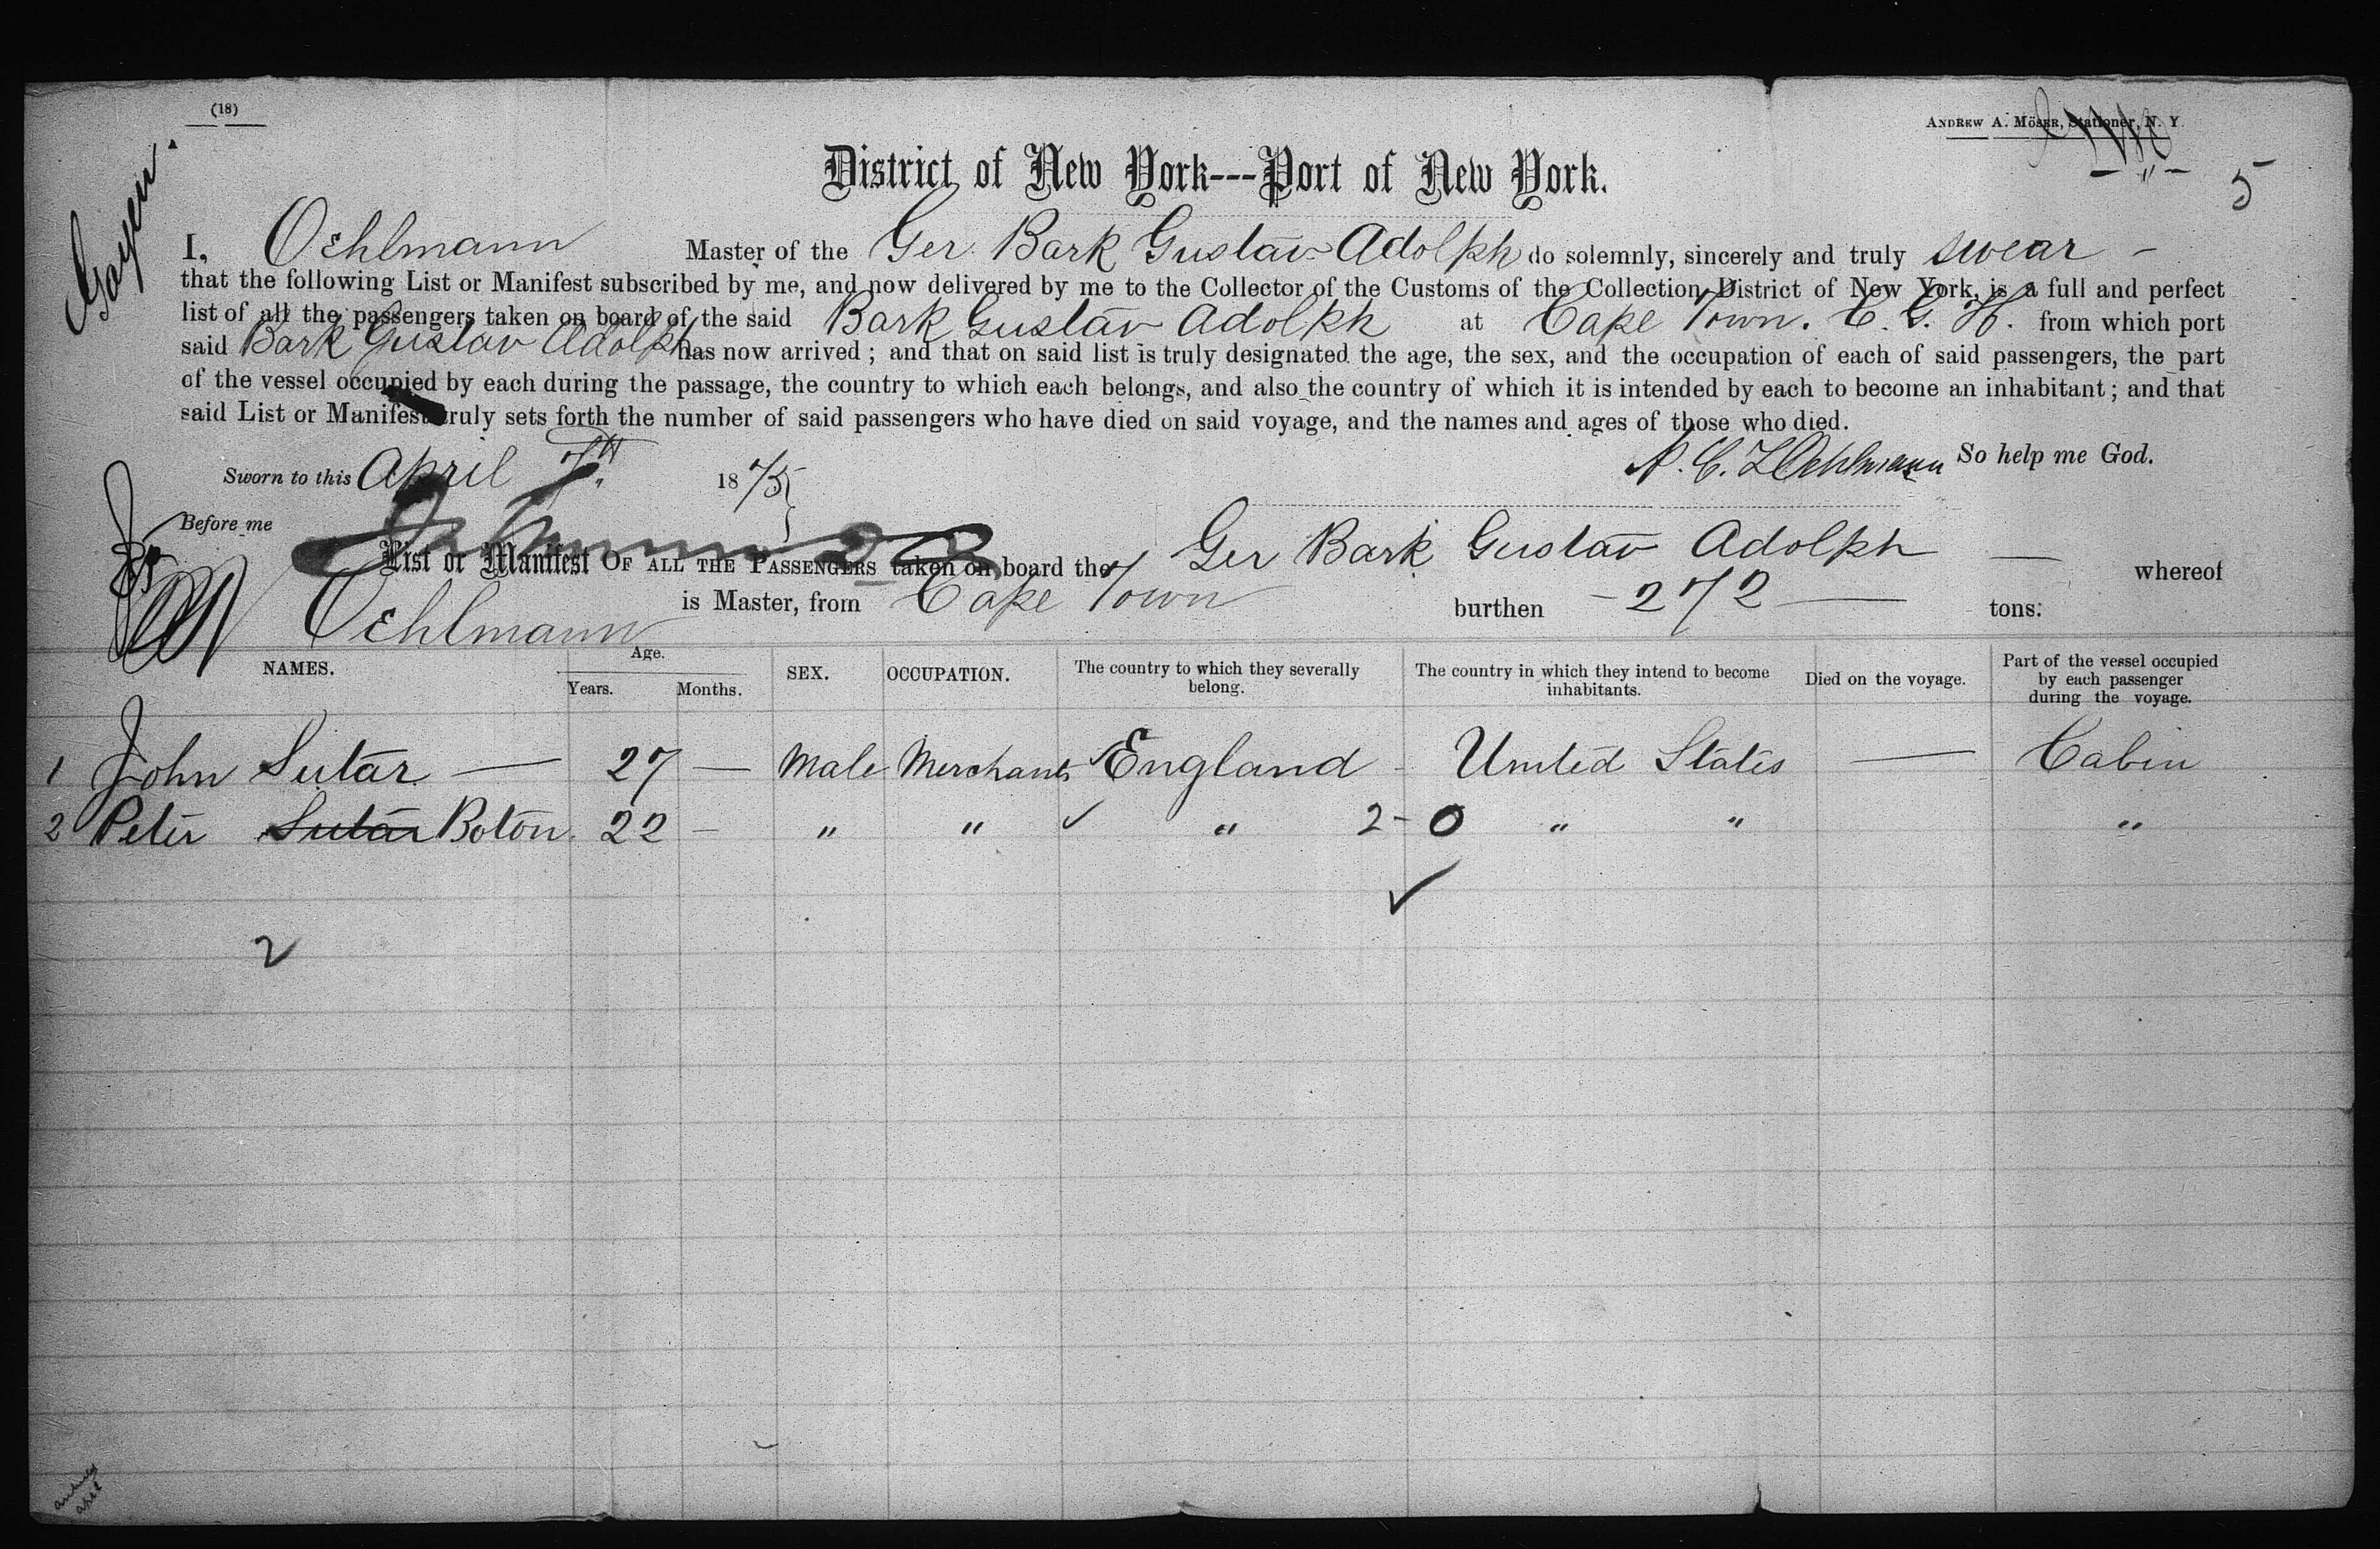 (18)
ANDREW A. MÖSER, Stationer, N. Y.
5
District of New York---Port of New York.
I, Oehlmann Master of the Ger. Bark Gustav Adolph do solemnly, sincerely and truly swear -
that the following List or Manifest subscribed by me, and now delivered by me to the Collector of the Customs of the Collection District of New York, is a full and perfect
list of all the passengers taken on board of the said Bark Gustav Adolph at Cape Town. C. G. H. from which port
said Bark Gustav Adolph has now arrived ; and that on said list is truly designated the age, the sex, and the occupation of each of said passengers, the part
of the vessel occupied by each during the passage, the country to which each belongs, and also the country of which it is intended by each to become an inhabitant ; and that
said List or Manifest truly sets forth the number of said passengers who have died on said voyage, and the names and ages of those who died.
Oehlmann So help me God.
Sworn to this April 7th 1875
Before me
List or Manifest OF ALL THE PASSENGERS taken on board the Ger Bark Gustav Adolph — whereof
Oehlmann is Master, from Cape Town burthen - 272 — tons.
NAMES. Age. Years. Months. SEX. OCCUPATION. The country to which they severally belong. The country in which they intend to become inhabitants. Died on the voyage. Part of the vessel occupied by each passenger during the voyage.
1 John Sutar — 27 — Male Merchants ✓ England - United States — Cabin
2 Peter Sutar Boton 22 — " " ✓ " 2-0 " " "
✓
2